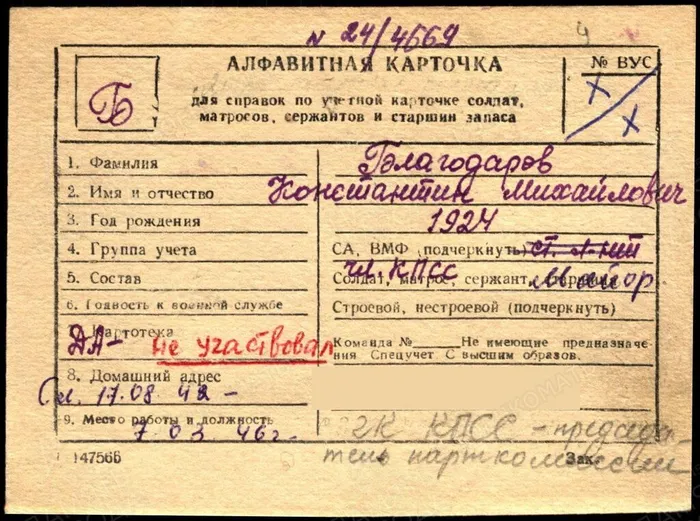 N 24/4669
АЛФАВИТНАЯ КАРТОЧКА
№ ВУС
Б
для справок по учетной карточке солдат,
матросов, сержантов и старшин запаса
X
X
1. Фамилия
Благодаров
2. Имя и отчество
Константин Михайлович
3. Год рождения
1924
4. Группа учета
СА, ВМФ (подчеркнуть)
ст. л-нт
5. Состав
чл. КПСС
Солдат, матрос, сержант, старшина
майор
6. Годность к военной службе
Строевой, нестроевой (подчеркнуть)
7. Картотека
ДА- не участвовал
Команда №______Не имеющие предназначе-
ния. Спецучет. С высшим образов.
8. Домашний адрес
Сл. 17.08 42 -
9. Место работы и должность
7.03. 46 г.
ГК КПСС - председа-
тель парткомиссии
147566
Зак.